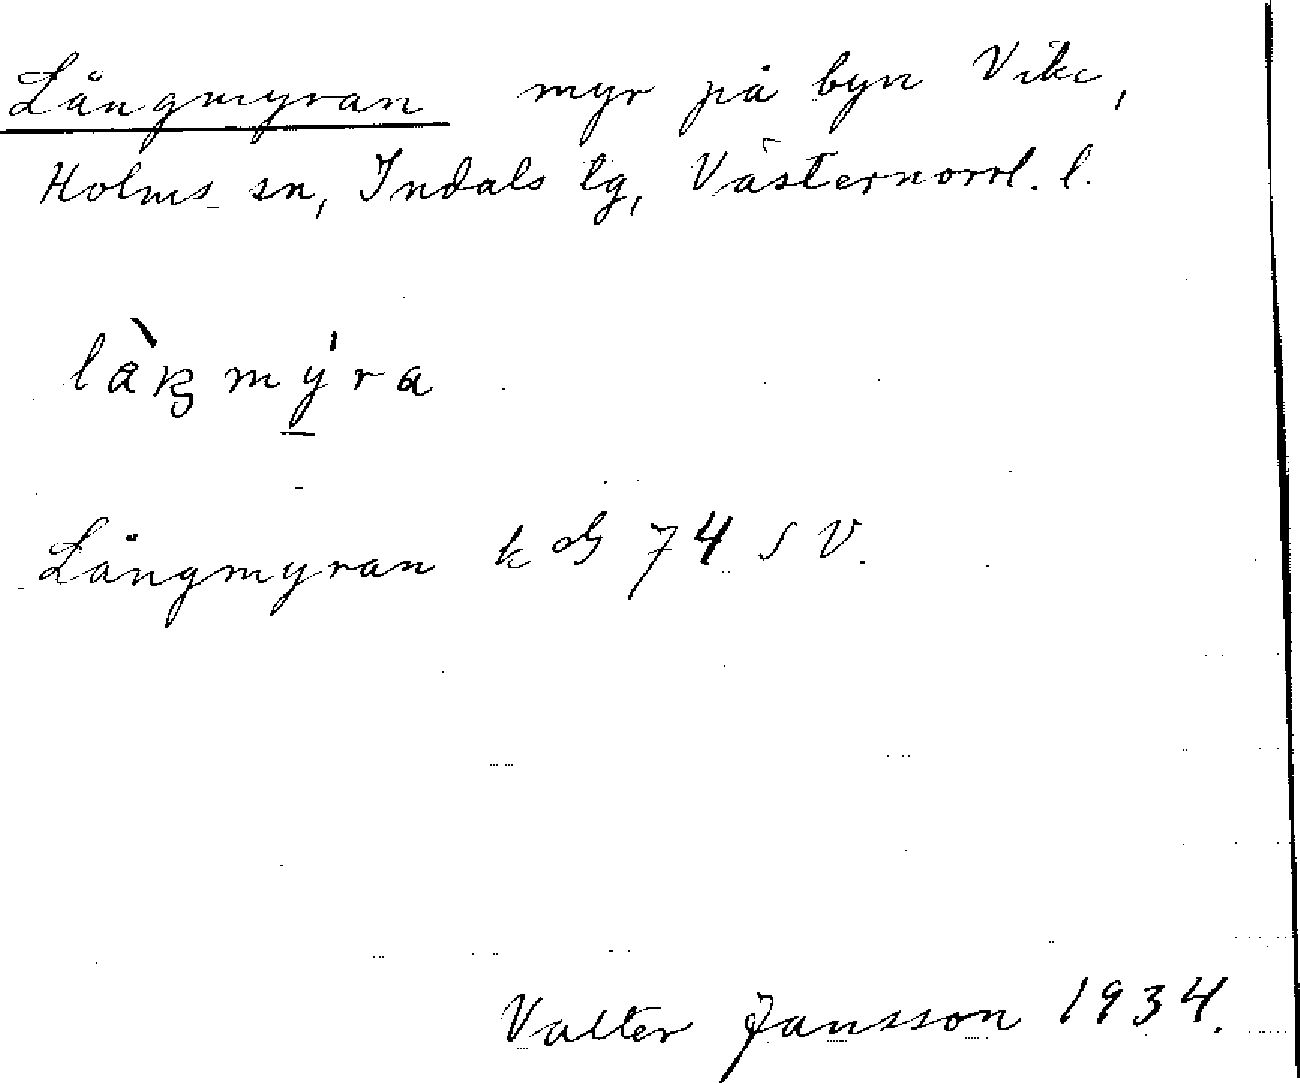 Långmyran myr på byn Vike,
Holms sn, Indals tg, Västernorrl. l.
Långmyran k bl 74 S V.
Valter Jansson 1934.